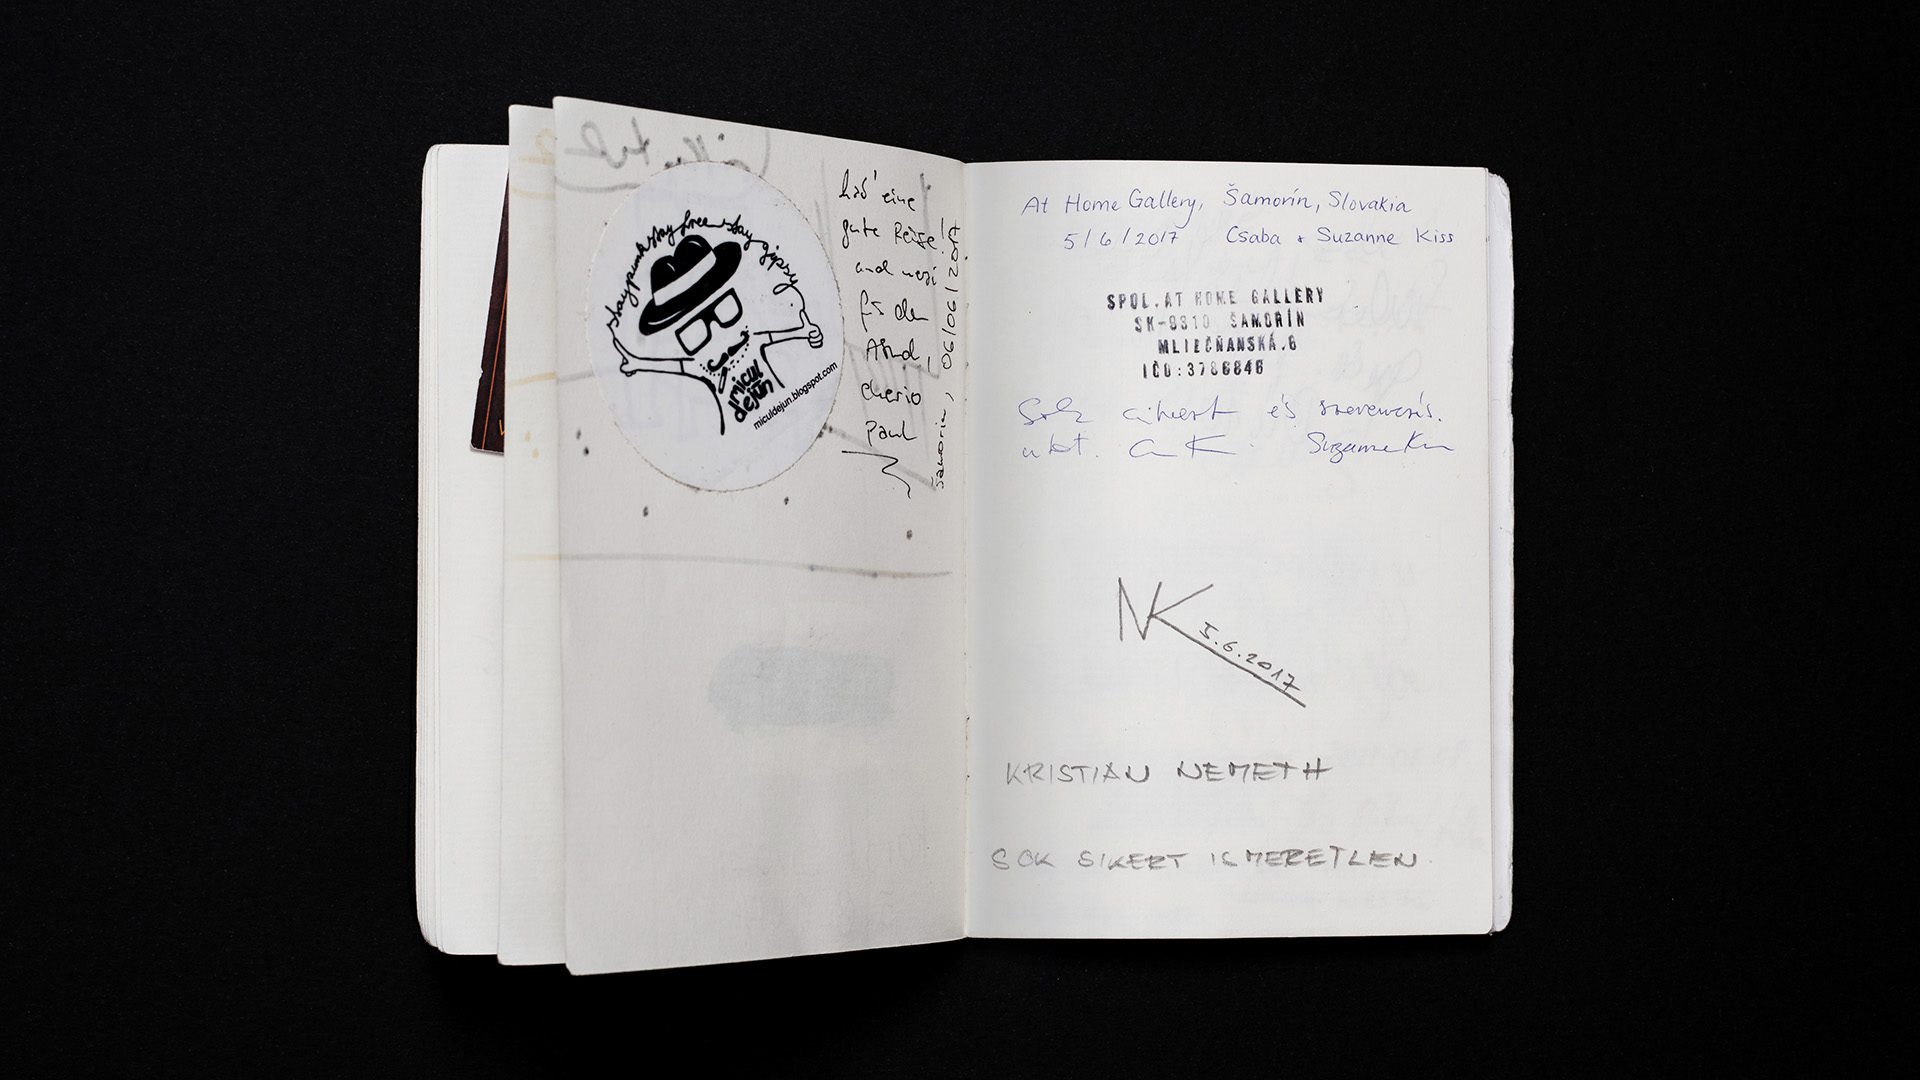 stay punk stay free stay gipsy
micul
dejun
miculdejun.blogspot.com
hab' eine
gute Reise!
und
für den
Abend,
cherio
Paul
Šamorin, 06/06/2017
At Home Gallery, Šamorín, Slovakia
5/6/2017 Csaba + Suzanne Kiss
SPOL. AT HOME GALLERY
SK-9310 ŠAMORÍN
MLIEČŇANSKÁ.6
IČO:3786846
Sok sikert és
Suzanne Kiss
NK 5.6.2017
KRISTIAN NEMETH
SOK SIKERT ISMERETLEN